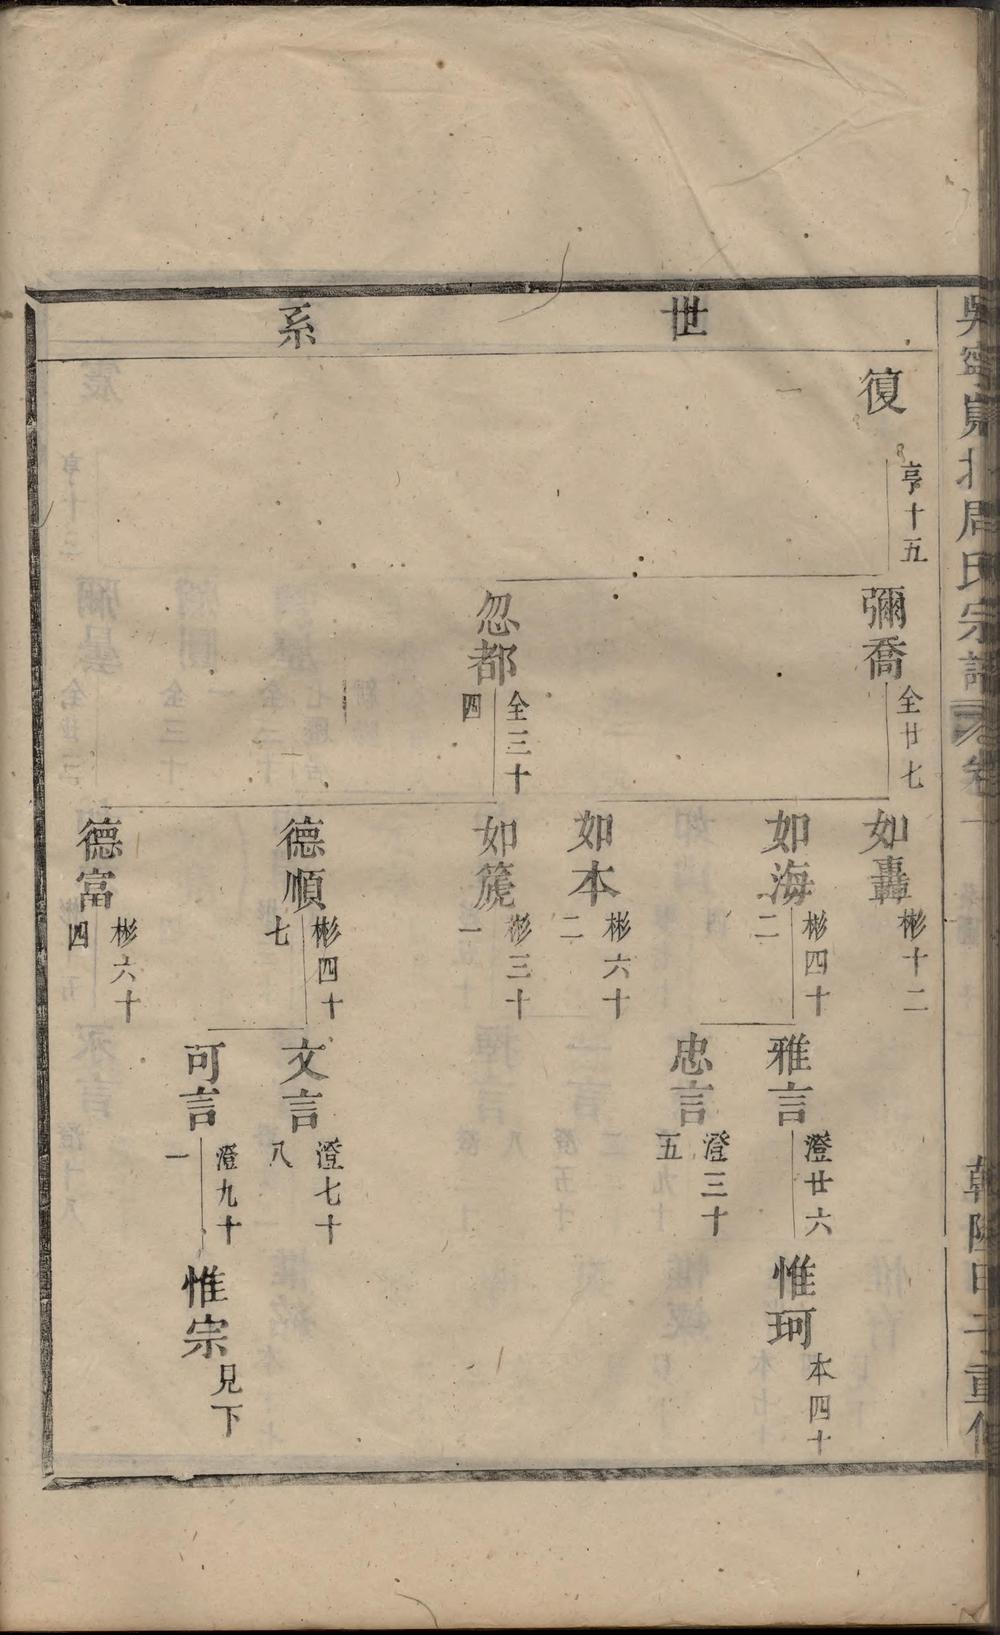 吳寧東北周氏宗譜 卷一 乾隆甲子重修
世系
復 亨十五
彌喬 全廿七
忽都 全三十四
如轟 彬十二
如海 彬四十二
如本 彬六十二
如箎 彬三十一
德順 彬四十七
德富 彬六十四
雅言 澄廿六
忠言 澄三十五
文言 澄七十八
可言 澄九十一
惟珂 本四十
惟宗 見下